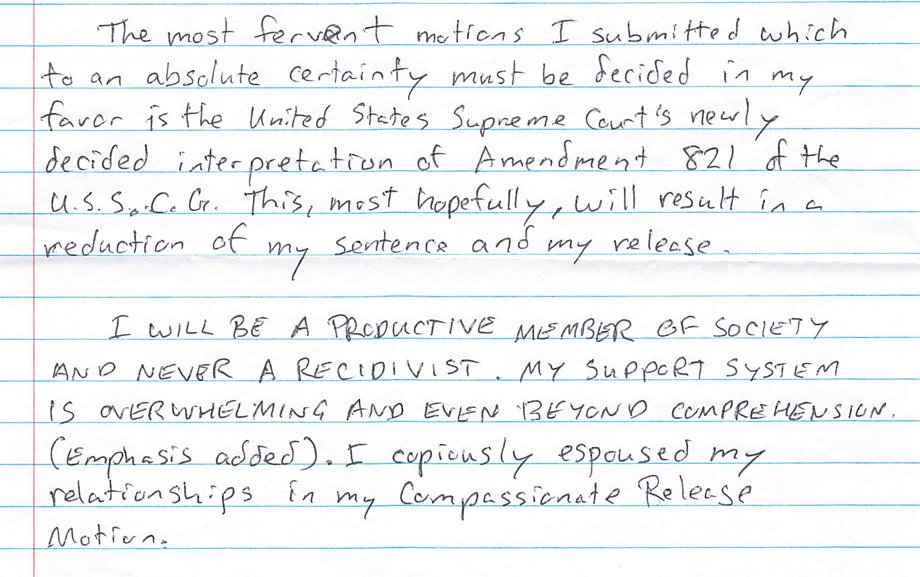 The most fervent motions I submitted which
to an absolute certainty must be decided in my
favor is the United States Supreme Court's newly
decided interpretation of Amendment 821 of the
U.S.S.C.G. This, most hopefully, will result in a
reduction of my sentence and my release.
I WILL BE A PRODUCTIVE MEMBER OF SOCIETY
AND NEVER A RECIDIVIST. MY SUPPORT SYSTEM
IS OVERWHELMING AND EVEN BEYOND COMPREHENSION.
(Emphasis added). I copiously espoused my
relationships in my Compassionate Release
Motion.